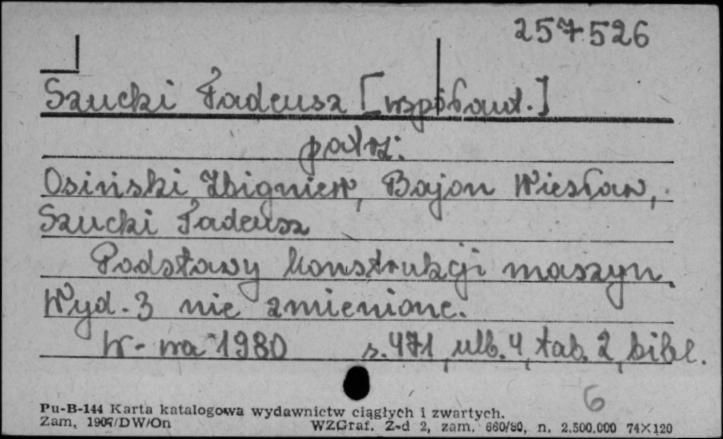 257526
Szucki Tadeusz [współaut.]
patrz:
Osiński Zbigniew, Bajon Wiesław,
Szucki Tadeusz
Podstawy konstrukcji maszyn.
Wyd. 3 nie zmienione.
W-wa 1980 s. 471, ulb. 4, tab. 2, bibl.
6
Pu-B-144 Karta katalogowa wydawnictw ciągłych i zwartych.
Zam, 1907/DW/On WZGraf. Z-d 2, zam. 660/80, n. 2.500.000 74X120